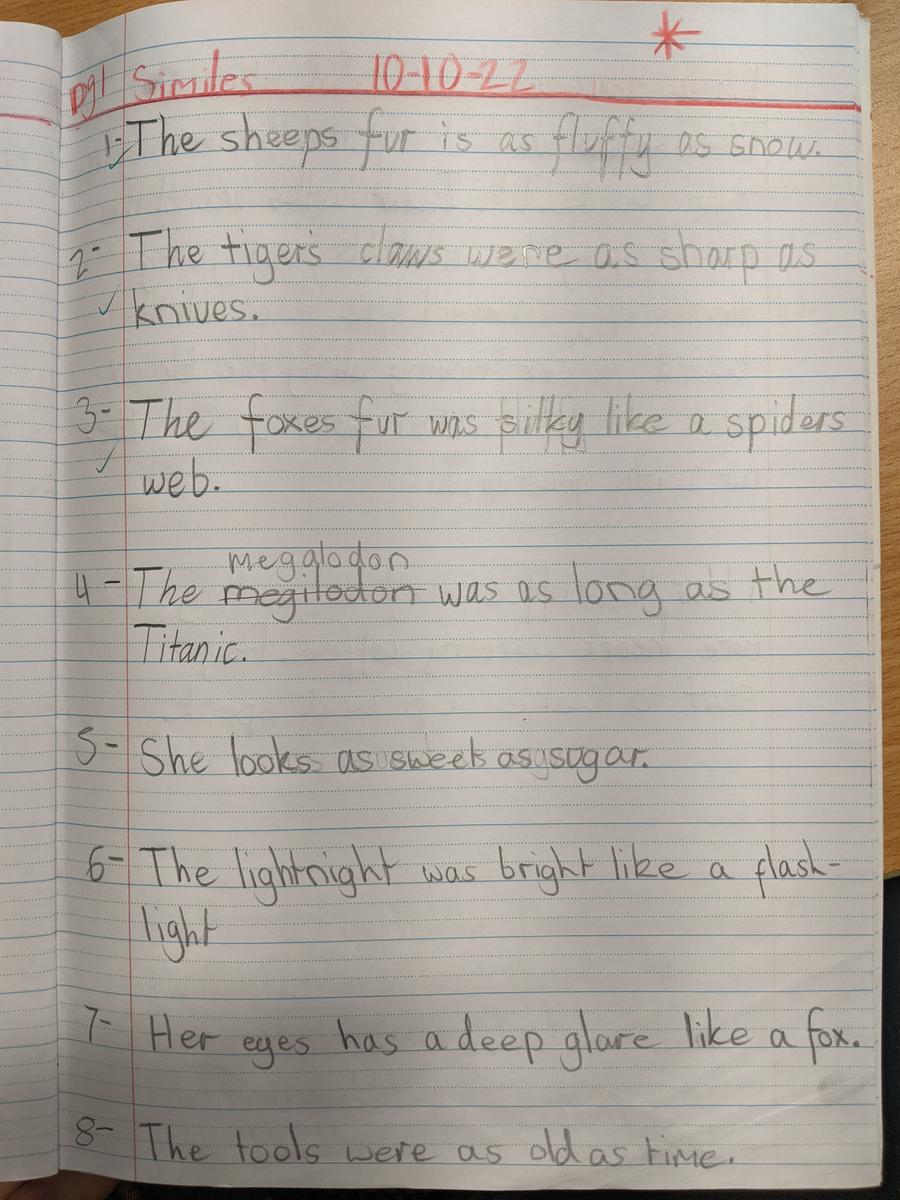 pg1 Similes 10-10-22
1- The sheeps fur is as fluffy as snow.
2- The tiger's claws were as sharp as
knives.
3- The foxes fur was silky like a spiders
web.
megalodon
4- The megilodon was as long as the
Titanic.
5- She looks as sweet as sugar.
6- The lightnight was bright like a flash-
light
7- Her eyes has a deep glare like a fox.
8- The tools were as old as time.